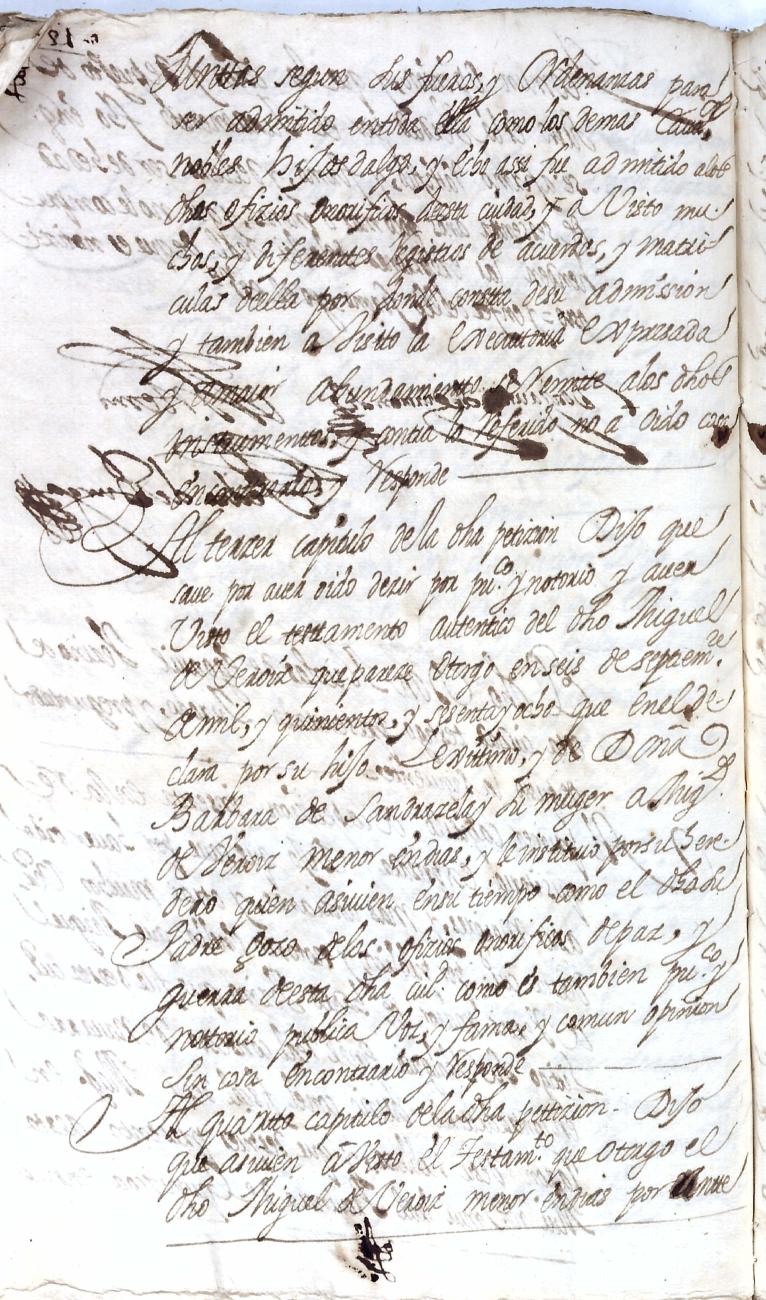 segun sus fueros, y Ordenanzas para
ser admitido entoda ella como los demas
nobles hijosdalgo, y echo assi fue admitido alos
dhos ofizios onorificos desta ciudad, y a Visto mu
chos, y diferentes registros de acuerdos, y matri
culas de ella por donde consta desu admission
y tambien a Visto la executoria expresada
y amaior abundamiento se Remite alos dhos
instrumentos, y contra lo Referido no a oido cosa
en contrario, y Responde
Al terzer capitulo de la dha petizion Dijo que
save por aver oido dezir por pu.co y notorio y aver
Visto el testamento autentico del dho Miguel
de Veroiz que pareze Otorgo en seis de septiem.re
de mil, y quinientos, y sesenta y ocho que enel de
clara por su hijo Lexitimo, y de Doña
Barbara de su muger a Mig.l
de Veroiz menor en dias, y le instituio por su here
dero quien asivien en su tiempo como el dho su
Padre gozo de los ofizios onorificos de paz, y
guerra de esta dha ciu.d como es tambien pu.co y
nottorio publica Voz, y fama, y comun opinion
sin cosa en contrario y Responde
Al quartto capitulo de la dha pettizion Dijo
que asivien a Visto el Testam.to que Otorgo el
dho Miguel de Veroiz menor en dias por